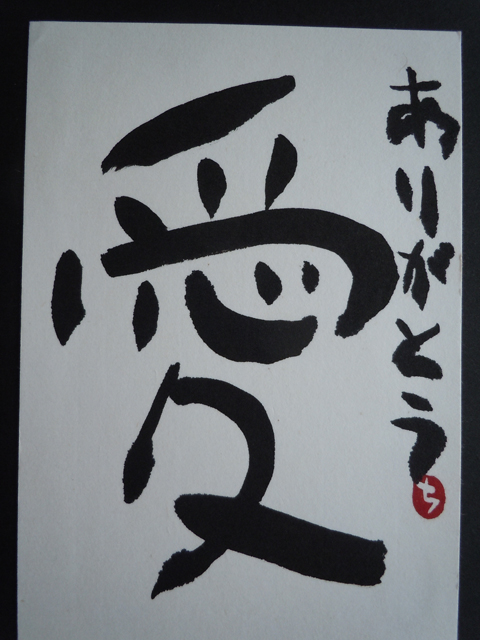 ありがとう
愛
ち